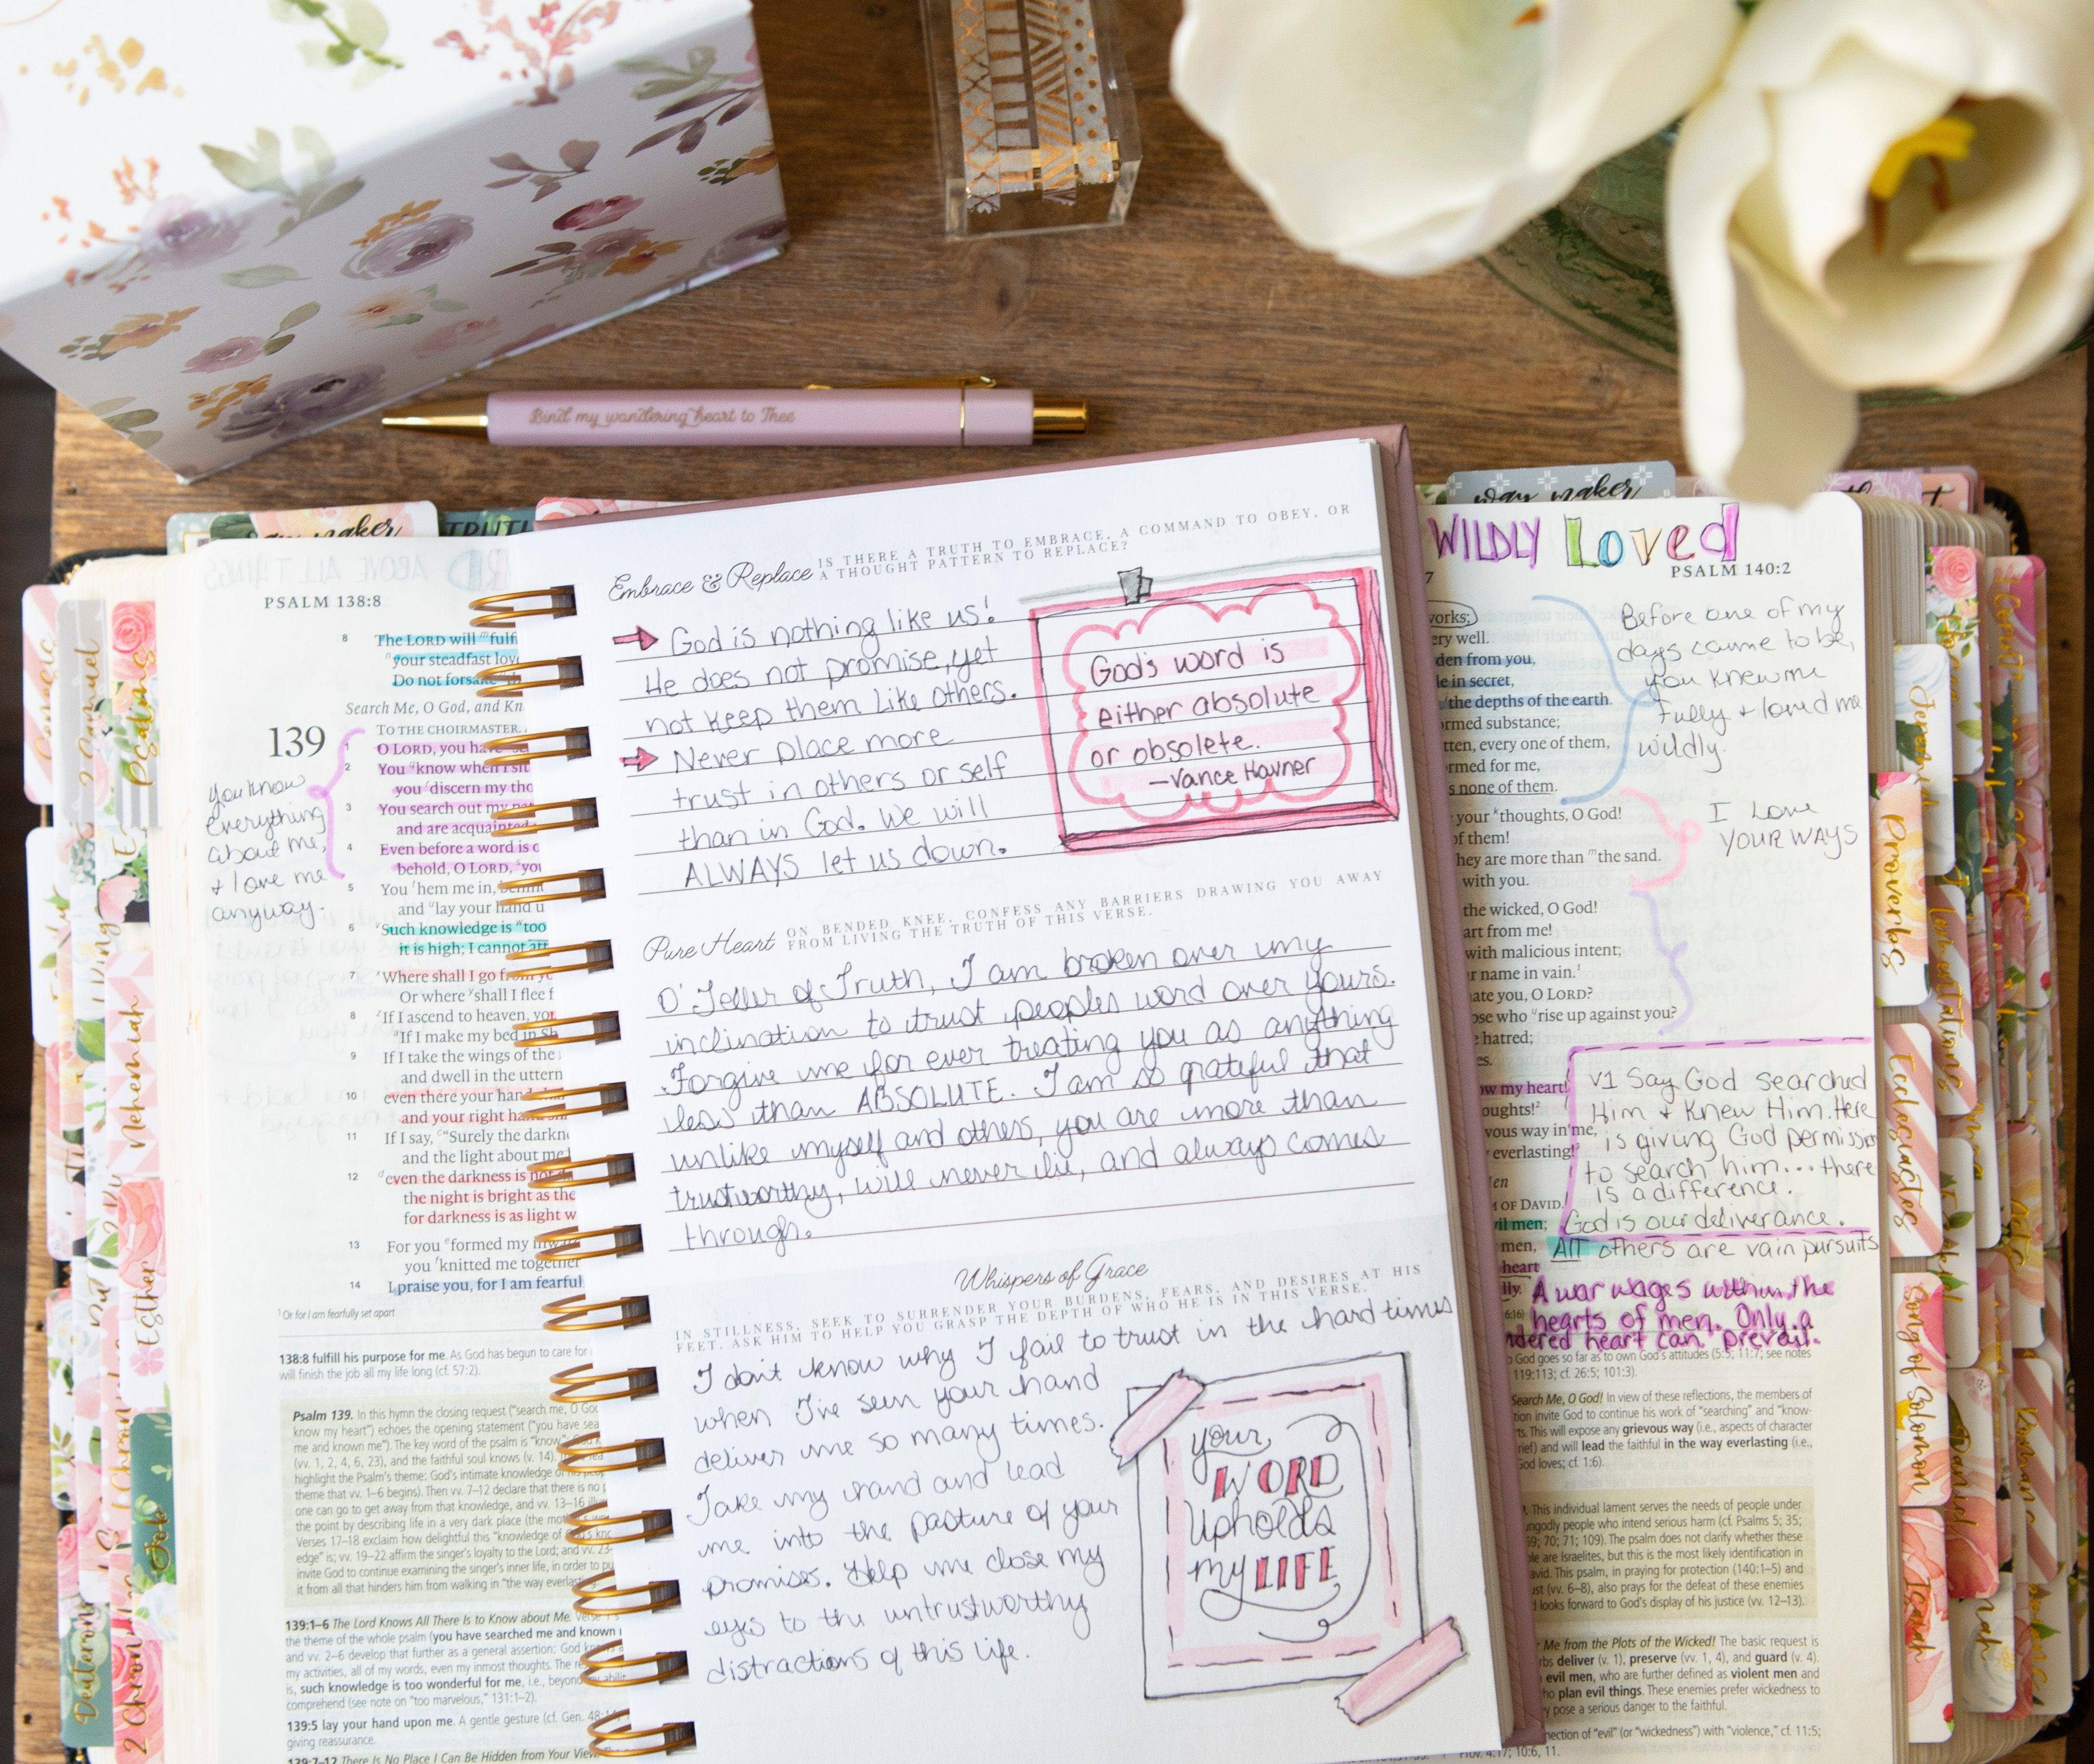 Bind my wandering heart to Thee
way maker
TRUTH
way maker
PSALM 138:8
8 The LORD will fulf
your steadfast lov
Do not forsake
Search Me, O God, and Kn
139
TO THE CHOIRMASTER.
1 O LORD, you ha
2 You know when I sit
you discern my tho
3 You search out my
and are acquainted
4 Even before a word is
behold, O LORD, you
5 You hem me in, behind
and lay your hand u
6 Such knowledge is too
it is high; I cannot att
7 Where shall I go from
Or where shall I flee f
8 If I ascend to heaven, you
If I make my bed in Sh
9 If I take the wings of the
and dwell in the uttern
10 even there your hand
and your right ha
11 If I say, "Surely the darkn
and the light about me
12 even the darkness is not
the night is bright as the
for darkness is as light w
13 For you formed my inward
you knitted me together
14 I praise you, for I am fearful
¹ Or for I am fearfully set apart
you know
everything
about me,
+ love me
anyway.
138:8 fulfill his purpose for me. As God has begun to care for
will finish the job all my life long (cf. 57:2).
Psalm 139. In this hymn the closing request ("search me, O God
know my heart") echoes the opening statement ("you have sea
me and known me"). The key word of the psalm is "know"
(vv. 1, 2, 4, 6, 23), and the faithful soul knows (v. 14).
highlight the Psalm's theme: God's intimate knowledge of
theme that vv. 1–6 begins). Then vv. 7–12 declare that there is no p
one can go to get away from that knowledge, and vv. 13–16
the point by describing life in a very dark place (the
Verses 17–18 exclaim how delightful this "knowledge of
edge" is; vv. 19–22 affirm the singer's loyalty to the Lord; and vv. 23–
invite God to continue examining the singer's inner life, in order to pu
it from all that hinders him from walking in "the way everlasting
139:1–6 The Lord Knows All There Is to Know about Me.
the theme of the whole psalm (you have searched me and known
and vv. 2–6 develop that further as a general assertion: God
my activities, all of my words, even my inmost thoughts. The
is, such knowledge is too wonderful for me, i.e., beyond
comprehend (see note on "too marvelous," 131:1–2).
139:5 lay your hand upon me. A gentle gesture (cf. Gen. 48:
giving reassurance.
139:7–12 There Is No Place I Can Be Hidden from Your View.
Embrace & Replace IS THERE A TRUTH TO EMBRACE, A COMMAND TO OBEY, OR
A THOUGHT PATTERN TO REPLACE?
God is nothing like us!
He does not promise, yet
not keep them like others.
Never place more
trust in others or self
than in God. We will
ALWAYS let us down.
God's word is
either absolute
or obsolete.
—Vance Havner
Pure Heart ON BENDED KNEE, CONFESS ANY BARRIERS DRAWING YOU AWAY
FROM LIVING THE TRUTH OF THIS VERSE.
O' Teller of Truth, I am broken over my
inclination to trust peoples word over yours.
Forgive me for ever treating you as anything
less than ABSOLUTE. I am so grateful that
unlike myself and others, you are more than
trustworthy, will never lie, and always comes
through.
Whispers of Grace
IN STILLNESS, SEEK TO SURRENDER YOUR BURDENS, FEARS, AND DESIRES AT HIS
FEET. ASK HIM TO HELP YOU GRASP THE DEPTH OF WHO HE IS IN THIS VERSE.
I don't know why I fail to trust in the hard times
when I've seen your hand
deliver me so many times.
Take my hand and lead
me into the pasture of your
promises. Help me close my
eyes to the untrustworthy
distractions of this life.
your
WORD
upholds
my LIFE
WILDLY Loved
7 PSALM 140:2
works;
ery well.
den from you,
e in secret,
the depths of the earth.
ormed substance;
tten, every one of them,
rmed for me,
s none of them.
your thoughts, O God!
of them!
hey are more than the sand.
with you.
the wicked, O God!
art from me!
with malicious intent;
r name in vain.
ate you, O LORD?
ose who rise up against you?
hatred;
es.
ow my heart!
oughts!
vous way in me,
everlasting!
OF DAVID.
vil men;
men,
heart
lly.
Before one of my
days came to be,
you knew me
fully + loved me
wildly.
I Love
YOUR WAYS
V1 Say God searched
Him + Knew Him. Here
is giving God permission
to search him... there
is a difference.
God is our deliverance.
All others are vain pursuits
A war wages within the
hearts of men. Only a
ndered heart can prevail.
God goes so far as to own God's attitudes (5:5; 11:7; see notes
119:113; cf. 26:5; 101:3).
Search Me, O God! In view of these reflections, the members of
tion invite God to continue his work of "searching" and "know-
ts. This will expose any grievous way (i.e., aspects of character
rief) and will lead the faithful in the way everlasting (i.e.,
God loves; cf. 1:6).
This individual lament serves the needs of people under
ngodly people who intend serious harm (cf. Psalms 5; 35;
59; 70; 71; 109). The psalm does not clarify whether these
le are Israelites, but this is the most likely identification in
avid. This psalm, in praying for protection (140:1–5) and
ust (vv. 6–8), also prays for the defeat of these enemies
looks forward to God's display of his justice (vv. 12–13).
Me from the Plots of the Wicked! The basic request is
rbs deliver (v. 1), preserve (vv. 1, 4), and guard (v. 4).
evil men, who are further defined as violent men and
ho plan evil things. These enemies prefer wickedness to
y pose a serious danger to the faithful.
nection of "evil" (or "wickedness") with "violence," cf. 11:5;
Prov. 4:17; 10:6, 11.
Genesis
2 Samuel
Psalms
Nehemiah
Esther
Job
Deuteronomy
2 Chron
Proverbs
Ecclesiastes
Song of Solomon
Isaiah
Jeremiah
Lamentations
Daniel